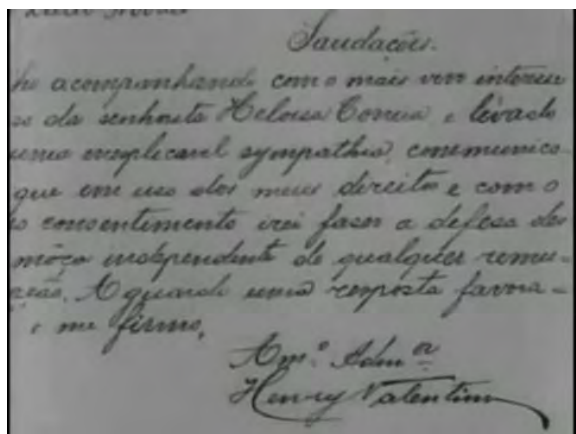 Saudações.
acompanhando com o mais vivo interes
da senhorita Heloisa Correia, e levado
uma inexplicavel sympathia, communico
que em uso dos meus direitos e com o
consentimento irei faser a defesa des
môça independente de qualquer remu-
Aguardo uma resposta favora-
e me firmo,
Amº. Admor
Henry Valentim